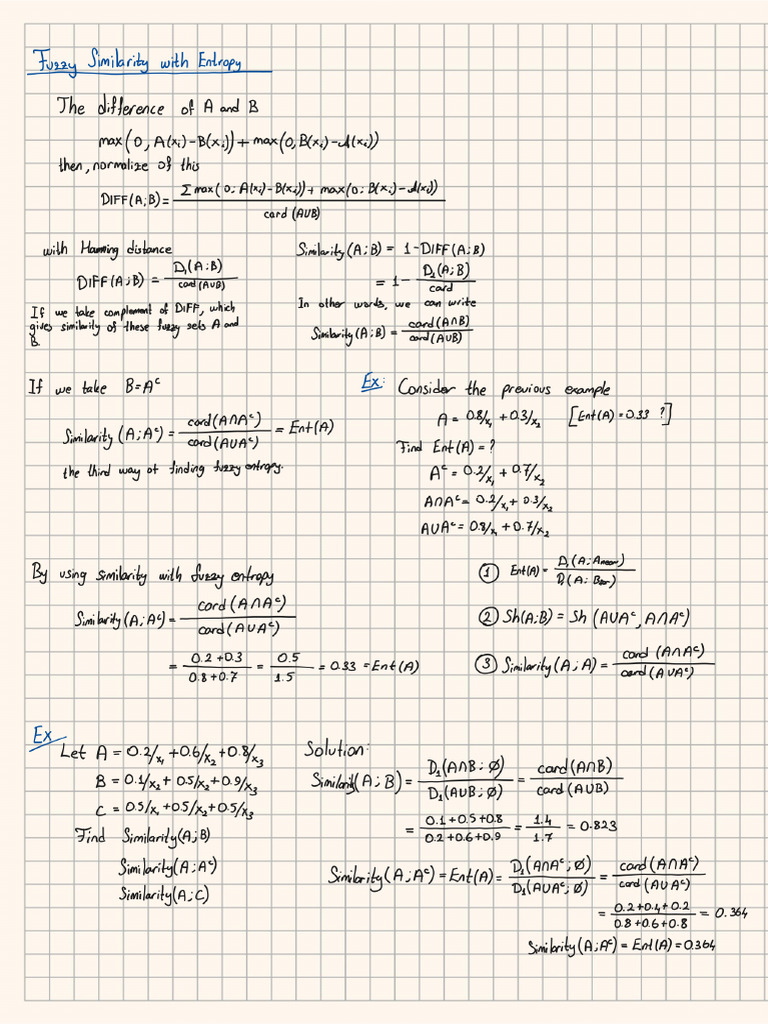 Fuzzy Similarity with Entropy
The difference of A and B
max(0, A(xᵢ)-B(xᵢ)) + max(0, B(xᵢ)-A(xᵢ))
then, normalize of this
DIFF(A;B) = Σmax(0; A(xᵢ)-B(xᵢ)) + max(0; B(xᵢ)-A(xᵢ)) / card(A∪B)
with Hamming distance
DIFF(A;B) = D₁(A;B) / card(A∪B)
If we take complement of DIFF, which
gives similarity of these fuzzy sets A and
B.
Similarity(A;B) = 1-DIFF(A;B)
= 1 - D₁(A;B) / card
In other words, we can write
Similarity(A;B) = card(A∩B) / card(A∪B)
If we take B=Aᶜ
Similarity(A;Aᶜ) = card(A∩Aᶜ) / card(A∪Aᶜ) = Ent(A)
the third way of finding fuzzy entropy.
Ex: Consider the previous example
A = 0.8/x₁ + 0.3/x₂ [Ent(A)=0.33 ?]
Find Ent(A)=?
Aᶜ = 0.2/x₁ + 0.7/x₂
A∩Aᶜ = 0.2/x₁ + 0.3/x₂
A∪Aᶜ = 0.8/x₁ + 0.7/x₂
By using similarity with fuzzy entropy
Similarity(A;Aᶜ) = card(A∩Aᶜ) / card(A∪Aᶜ)
= 0.2+0.3 / 0.8+0.7 = 0.5 / 1.5 = 0.33 = Ent(A)
① Ent(A) = D₁(A;Anear) / D₁(A;Bfar)
② Sh(A;B) = Sh(A∪Aᶜ, A∩Aᶜ)
③ Similarity(A;A) = card(A∩Aᶜ) / card(A∪Aᶜ)
Ex
Let A = 0.2/x₁ + 0.6/x₂ + 0.8/x₃
B = 0.1/x₂ + 0.5/x₂ + 0.9/x₃
C = 0.5/x₁ + 0.5/x₂ + 0.5/x₃
Find Similarity(A;B)
Similarity(A;Aᶜ)
Similarity(A;C)
Solution:
Similarity(A;B) = D₁(A∩B;∅) / D₁(A∪B;∅) = card(A∩B) / card(A∪B)
= 0.1+0.5+0.8 / 0.2+0.6+0.9 = 1.4 / 1.7 = 0.823
Similarity(A;Aᶜ) = Ent(A) = D₁(A∩Aᶜ;∅) / D₁(A∪Aᶜ;∅) = card(A∩Aᶜ) / card(A∪Aᶜ)
= 0.2+0.4+0.2 / 0.8+0.6+0.8 = 0.364
Similarity(A;Aᶜ) = Ent(A) = 0.364